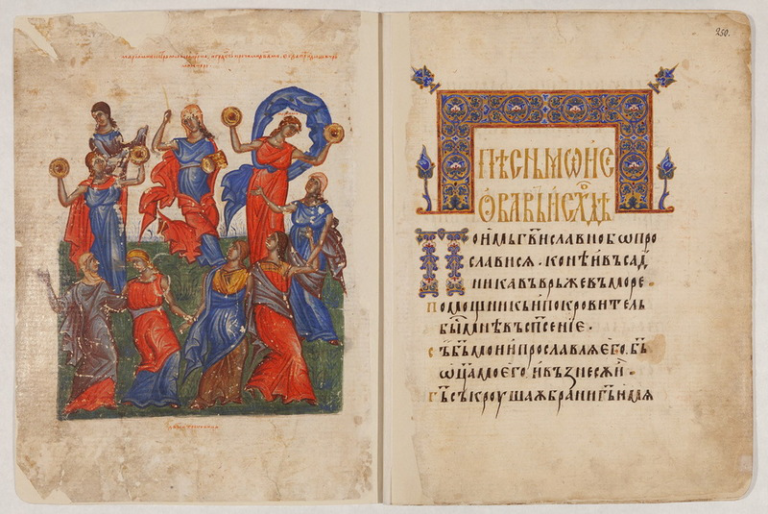 250.
ПѢСНЬ МѠѴСЕ
ѺВА ВЬ ИСХѺДѢ
Поимь г҃ви славно бѡ про
слависѧ · конѣ и въсад
ника въврьже въ море ·
помощникь и покровитель
бы мнѣ въ сп҃сенїе ·
съ б҃ь мои и прославлѧ его · б҃ь
ѡц҃а моего и възнесѫ и ·
г҃ь съкроушаѧ брани г҃ь имѧ